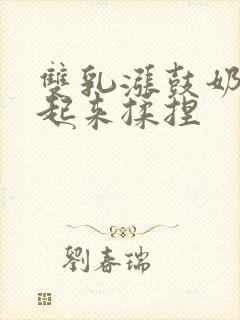 雙乳漲鼓奶
起来揉捏
劉春瑞